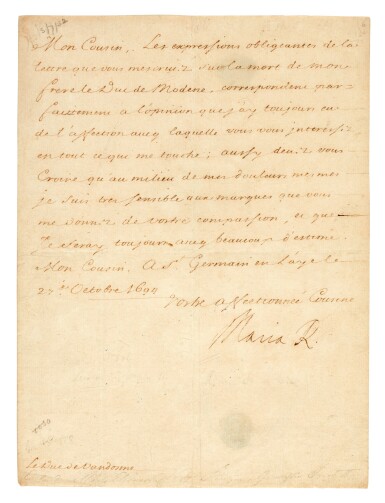 Mon Cousin, Les expressions obligeantes de la
lettre que vous sur la mort de mon
frere le Duc de Modene, correspondent par-
faitement a l'opinion que j'ay toujours eu
de l'affection avec laquelle vous vous interessez
en tout ce que me touche; aussy devez vous
Croire qu'au milieu de mes douleurs mesmes
je suis tres sensible aux marques que vous
me donnez de vostre compassion, et que
je seray toujours avec beaucoup d'estime
Mon Cousin. A St Germain en Laye le
Octobre 169
Vostre affectionnée Cousine
Maria R.
le Duc de Vandosme